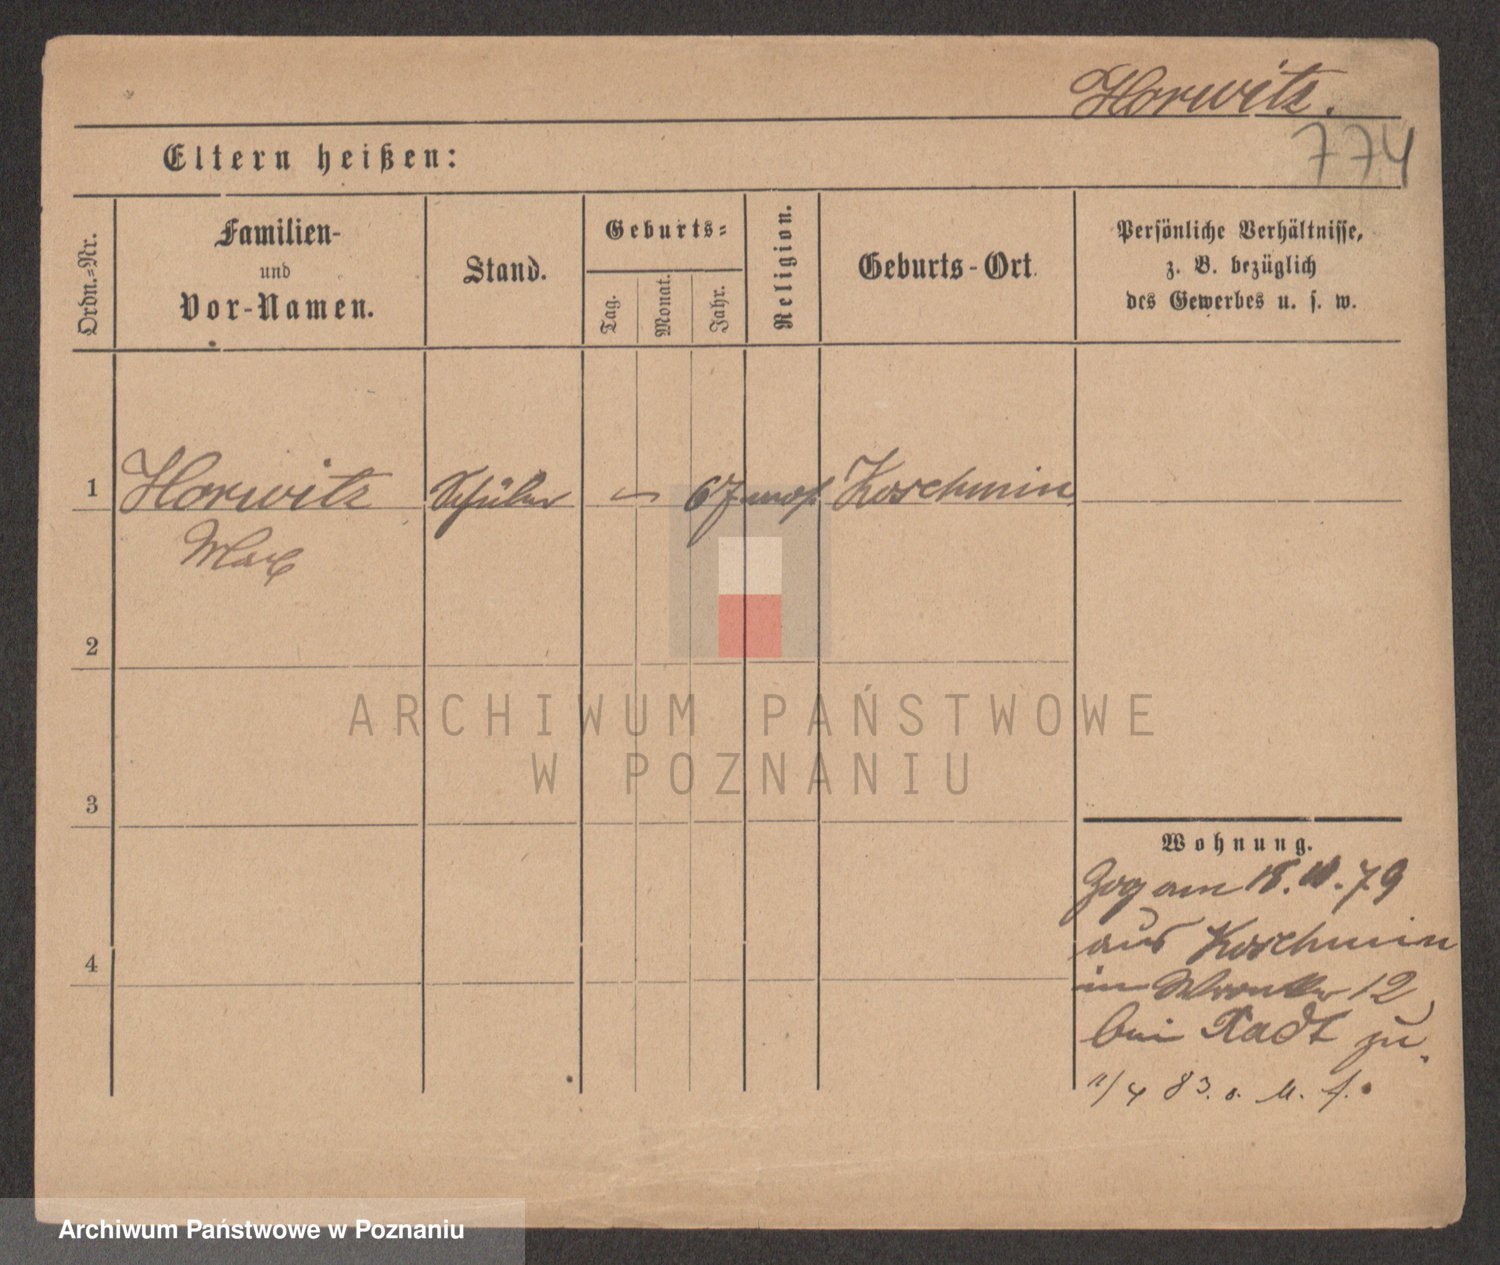 Horwitz.
774
Eltern heißen:
Ordn.-Nr.
Familien-
und
Vor-Namen.
Stand.
Geburts-
Tag.
Monat.
Jahr.
Religion.
Geburts-Ort.
Persönliche Verhältnisse,
z. B. bezüglich
des Gewerbes u. s. w.
1 Horwitz Schüler 67 mos. Koschmin
Max
2
3
4
ARCHIWUM PAŃSTWOWE
W POZNANIU
Wohnung.
Zog am 18. 10. 79
aus Koschmin
in Wronker 12
bei Radt zu.
1/4 83. o. M. f.
Archiwum Państwowe w Poznaniu